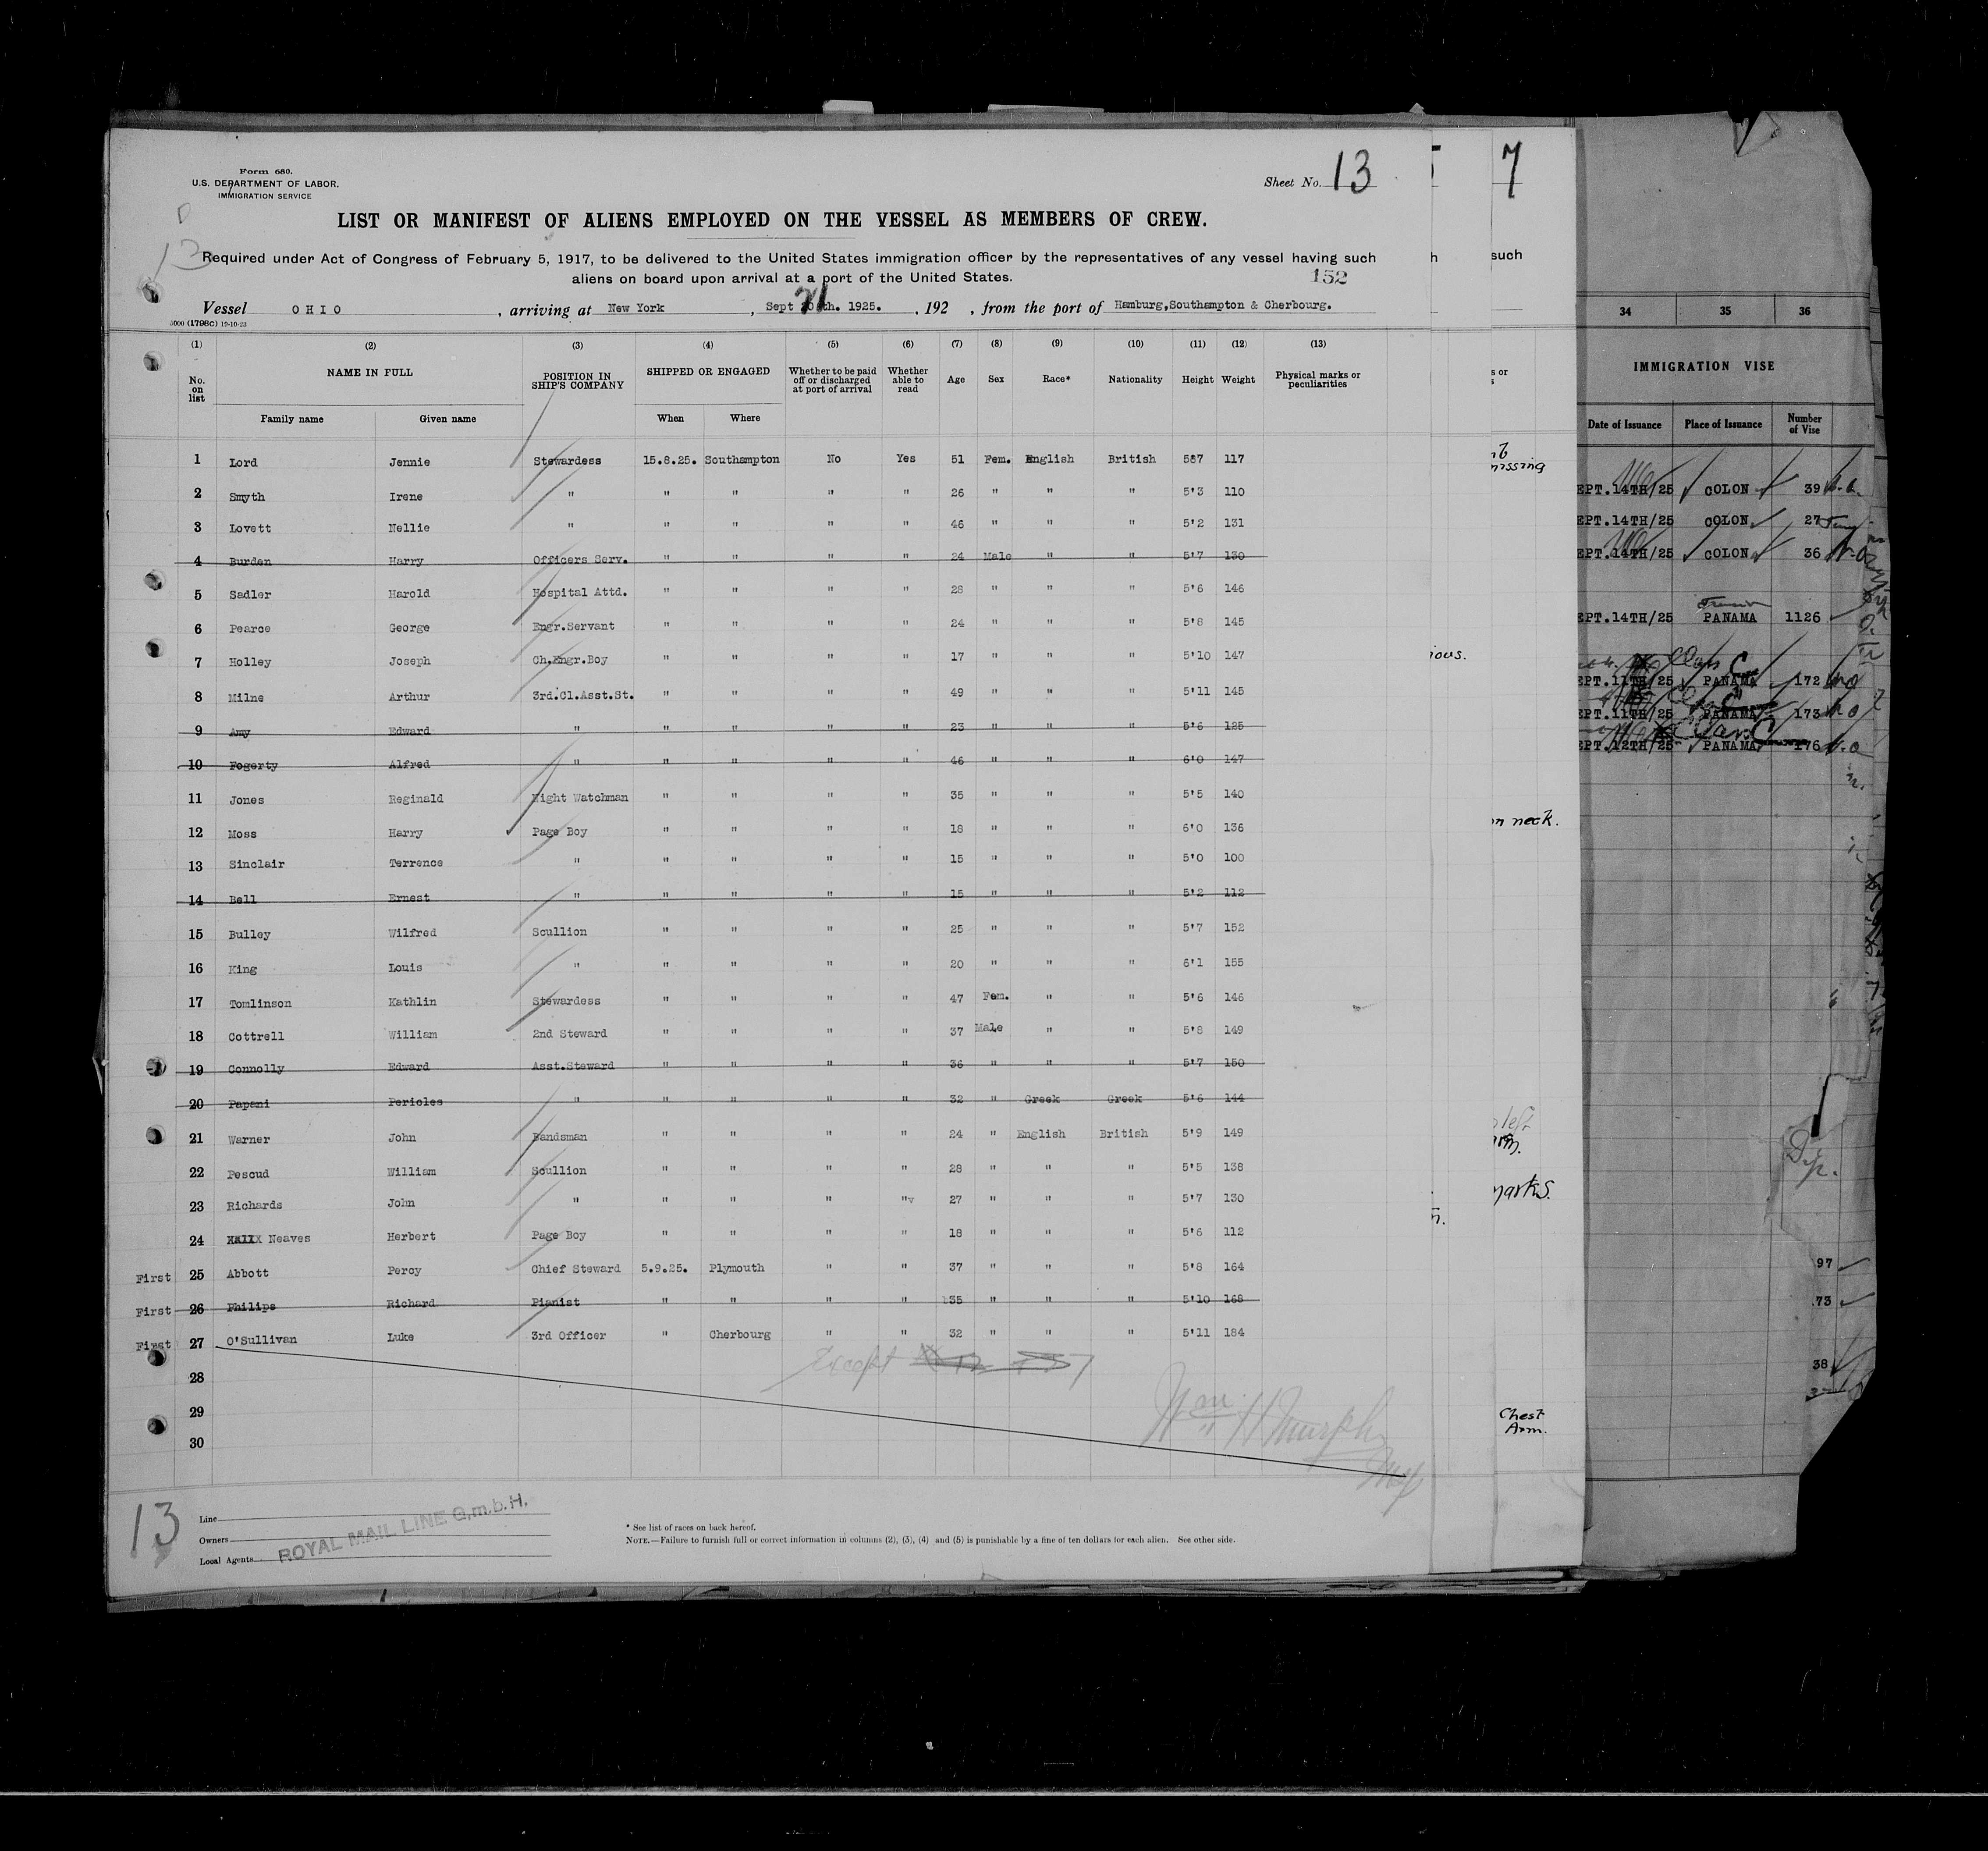 Form 680.
U.S. DEPARTMENT OF LABOR,
IMMIGRATION SERVICE
Sheet No. 13
LIST OR MANIFEST OF ALIENS EMPLOYED ON THE VESSEL AS MEMBERS OF CREW.
13
Required under Act of Congress of February 5, 1917, to be delivered to the United States immigration officer by the representatives of any vessel having such
aliens on board upon arrival at a port of the United States.
152
Vessel OHIO , arriving at New York , Sept 20th. 1925. , 192 , from the port of Hamburg,Southampton & Cherbourg.
21
5000 (1798C) 19-10-23
(1) (2) (3) (4) (5) (6) (7) (8) (9) (10) (11) (12) (13)
No. on list NAME IN FULL POSITION IN SHIP'S COMPANY SHIPPED OR ENGAGED Whether to be paid off or discharged at port of arrival Whether able to read Age Sex Race* Nationality Height Weight Physical marks or peculiarities
Family name Given name When Where
1 Lord Jennie Stewardess 15.8.25. Southampton No Yes 51 Fem. English British 5'7 117
2 Smyth Irene " " " " " 26 " " " 5'3 110
3 Lovett Nellie " " " " " 46 " " " 5'2 131
4 Burden Harry Officers Serv. " " " " 24 Male " " 5'7 130
5 Sadler Harold Hospital Attd. " " " " 28 " " " 5'6 146
6 Pearce George Engr.Servant " " " " 24 " " " 5'8 145
7 Holley Joseph Ch.Engr.Boy " " " " 17 " " " 5'10 147
8 Milne Arthur 3rd.Cl.Asst.St. " " " " 49 " " " 5'11 145
9 Amy Edward " " " " " 23 " " " 5'6 125
10 Fogerty Alfred " " " " " 46 " " " 6'0 147
11 Jones Reginald Night Watchman " " " " 35 " " " 5'5 140
12 Moss Harry Page Boy " " " " 18 " " " 6'0 136
13 Sinclair Terrence " " " " " 15 " " " 5'0 100
14 Bell Ernest " " " " " 15 " " " 5'2 112
15 Bulley Wilfred Scullion " " " " 25 " " " 5'7 152
16 King Louis " " " " " 20 " " " 6'1 155
17 Tomlinson Kathlin Stewardess " " " " 47 Fem. " " 5'6 146
18 Cottrell William 2nd Steward " " " " 37 Male " " 5'8 149
19 Connolly Edward Asst.Steward " " " " 36 " " " 5'7 150
20 Papani Pericles " " " " " 32 " Greek Greek 5'6 144
21 Warner John Bandsman " " " " 24 " English British 5'9 149
22 Pescud William Scullion " " " " 28 " " " 5'5 138
23 Richards John " " " " " 27 " " " 5'7 130
24 Neaves Herbert Page Boy " " " " 18 " " " 5'6 112
First 25 Abbott Percy Chief Steward 5.9.25. Plymouth " " 37 " " " 5'8 164
First 26 Philips Richard Pianist " " " " 35 " " " 5'10 168
First 27 O'Sullivan Luke 3rd Officer " Cherbourg " " 32 " " " 5'11 184
Except
28
29
30
Wm H Murphy
13
Line
Owners
Local Agents
ROYAL MAIL LINE G.m.b.H.
* See list of races on back hereof.
NOTE.—Failure to furnish full or correct information in columns (2), (3), (4) and (5) is punishable by a fine of ten dollars for each alien. See other side.
7
h
such
s or
missing
ious.
on neck.
left
arm.
marks.
Chest
Arm.
34 35 36
IMMIGRATION VISE
Date of Issuance Place of Issuance Number of Vise
EPT.14TH/25 COLON 39
EPT.14TH/25 COLON 27
EPT.14TH/25 COLON 36
Transit
EPT.14TH/25 PANAMA 1126
EPT.11TH/25 PANAMA 172
EPT.11TH/25 PANAMA 173
EPT.12TH/25 PANAMA 176
97
73
38